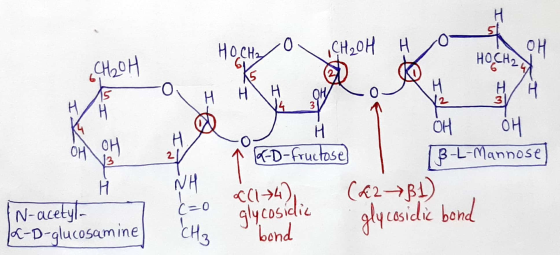 6 CH₂OH
H 5 O
H H
4 1
OH OH H
3 2
H NH
C=O
CH₃
N-acetyl-
α-D-glucosamine
O
α(1→4)
glycosidic
bond
HOCH₂ O 1 CH₂OH
6
5 2
H H OH
4 3
H
α-D-fructose
O
(α2→β1)
glycosidic bond
H O H
5
HOCH₂ OH
6 4
1 H
H H
2 3
OH OH
β-L-Mannose